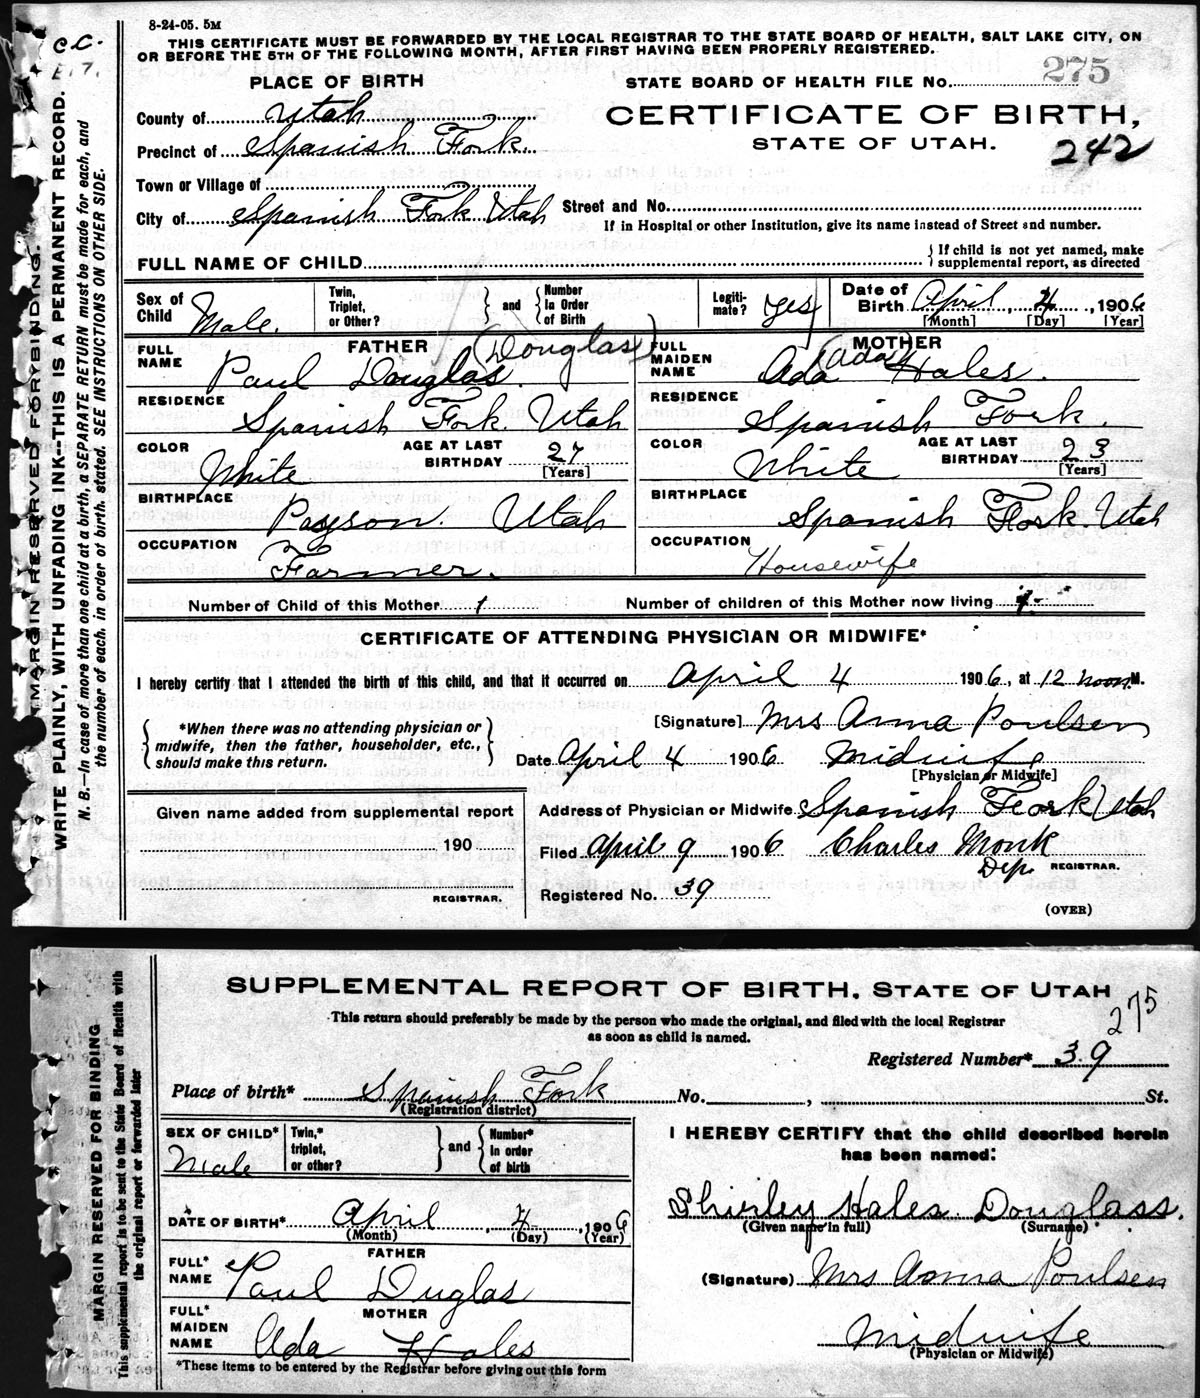 8-24-05. 5M
THIS CERTIFICATE MUST BE FORWARDED BY THE LOCAL REGISTRAR TO THE STATE BOARD OF HEALTH, SALT LAKE CITY, ON
OR BEFORE THE 5TH OF THE FOLLOWING MONTH, AFTER FIRST HAVING BEEN PROPERLY REGISTERED.
C.C.
MARGIN RESERVED FOR BINDING.
WRITE PLAINLY, WITH UNFADING INK—THIS IS A PERMANENT RECORD.
N. B.—In case of more than one child at a birth, a SEPARATE RETURN must be made for each, and
the number of each, in order of birth, stated. SEE INSTRUCTIONS ON OTHER SIDE.
PLACE OF BIRTH
STATE BOARD OF HEALTH FILE No. 275
County of Utah
CERTIFICATE OF BIRTH,
Precinct of Spanish Fork.
STATE OF UTAH. 242
Town or Village of
City of Spanish Fork Utah Street and No.
If in Hospital or other Institution, give its name instead of Street and number.
FULL NAME OF CHILD { If child is not yet named, make
supplemental report, as directed
Sex of Child Male. Twin, Triplet, or Other? } and { Number In Order of Birth Legiti- mate? yes Date of Birth April 4, 1906
[Month] [Day] [Year]
FATHER (Douglas) MOTHER (Ada)
FULL NAME Paul Douglas. FULL MAIDEN NAME Ada Hales.
RESIDENCE Spanish Fork. Utah RESIDENCE Spanish Fork.
COLOR White AGE AT LAST BIRTHDAY 27 [Years] COLOR White AGE AT LAST BIRTHDAY 23 [Years]
BIRTHPLACE Payson. Utah BIRTHPLACE Spanish Fork. Utah
OCCUPATION Farmer. OCCUPATION Housewife
Number of Child of this Mother 1 Number of children of this Mother now living 1-
CERTIFICATE OF ATTENDING PHYSICIAN OR MIDWIFE*
I hereby certify that I attended the birth of this child, and that it occurred on April 4 1906, at 12 noon M.
{ *When there was no attending physician or
midwife, then the father, householder, etc.,
should make this return. }
[Signature] Mrs Anna Poulsen
Date April 4 1906 Midwife
[Physician or Midwife]
Given name added from supplemental report
190
REGISTRAR.
Address of Physician or Midwife Spanish Fork Utah
Filed April 9 1906 Charles Monk
Dep. REGISTRAR.
Registered No. 39
(OVER)
MARGIN RESERVED FOR BINDING
This supplemental report is to be sent to the State Board of Health with
the original report or forwarded later
SUPPLEMENTAL REPORT OF BIRTH, STATE OF UTAH
275
This return should preferably be made by the person who made the original, and filed with the local Registrar
as soon as child is named.
Registered Number* 39
Place of birth* Spanish Fork No. , St.
(Registration district)
SEX OF CHILD* Male Twin,* triplet, or other? } and { Number* in order of birth
DATE OF BIRTH* April, 4, 1906
(Month) (Day) (Year)
FATHER
FULL* NAME Paul Duglas
MOTHER
FULL* MAIDEN NAME Ada Hales
*These items to be entered by the Registrar before giving out this form
I HEREBY CERTIFY that the child described herein
has been named:
Shirley Hales Douglass.
(Given name in full) (Surname)
(Signature) Mrs Anna Poulsen
Midwife
(Physician or Midwife)